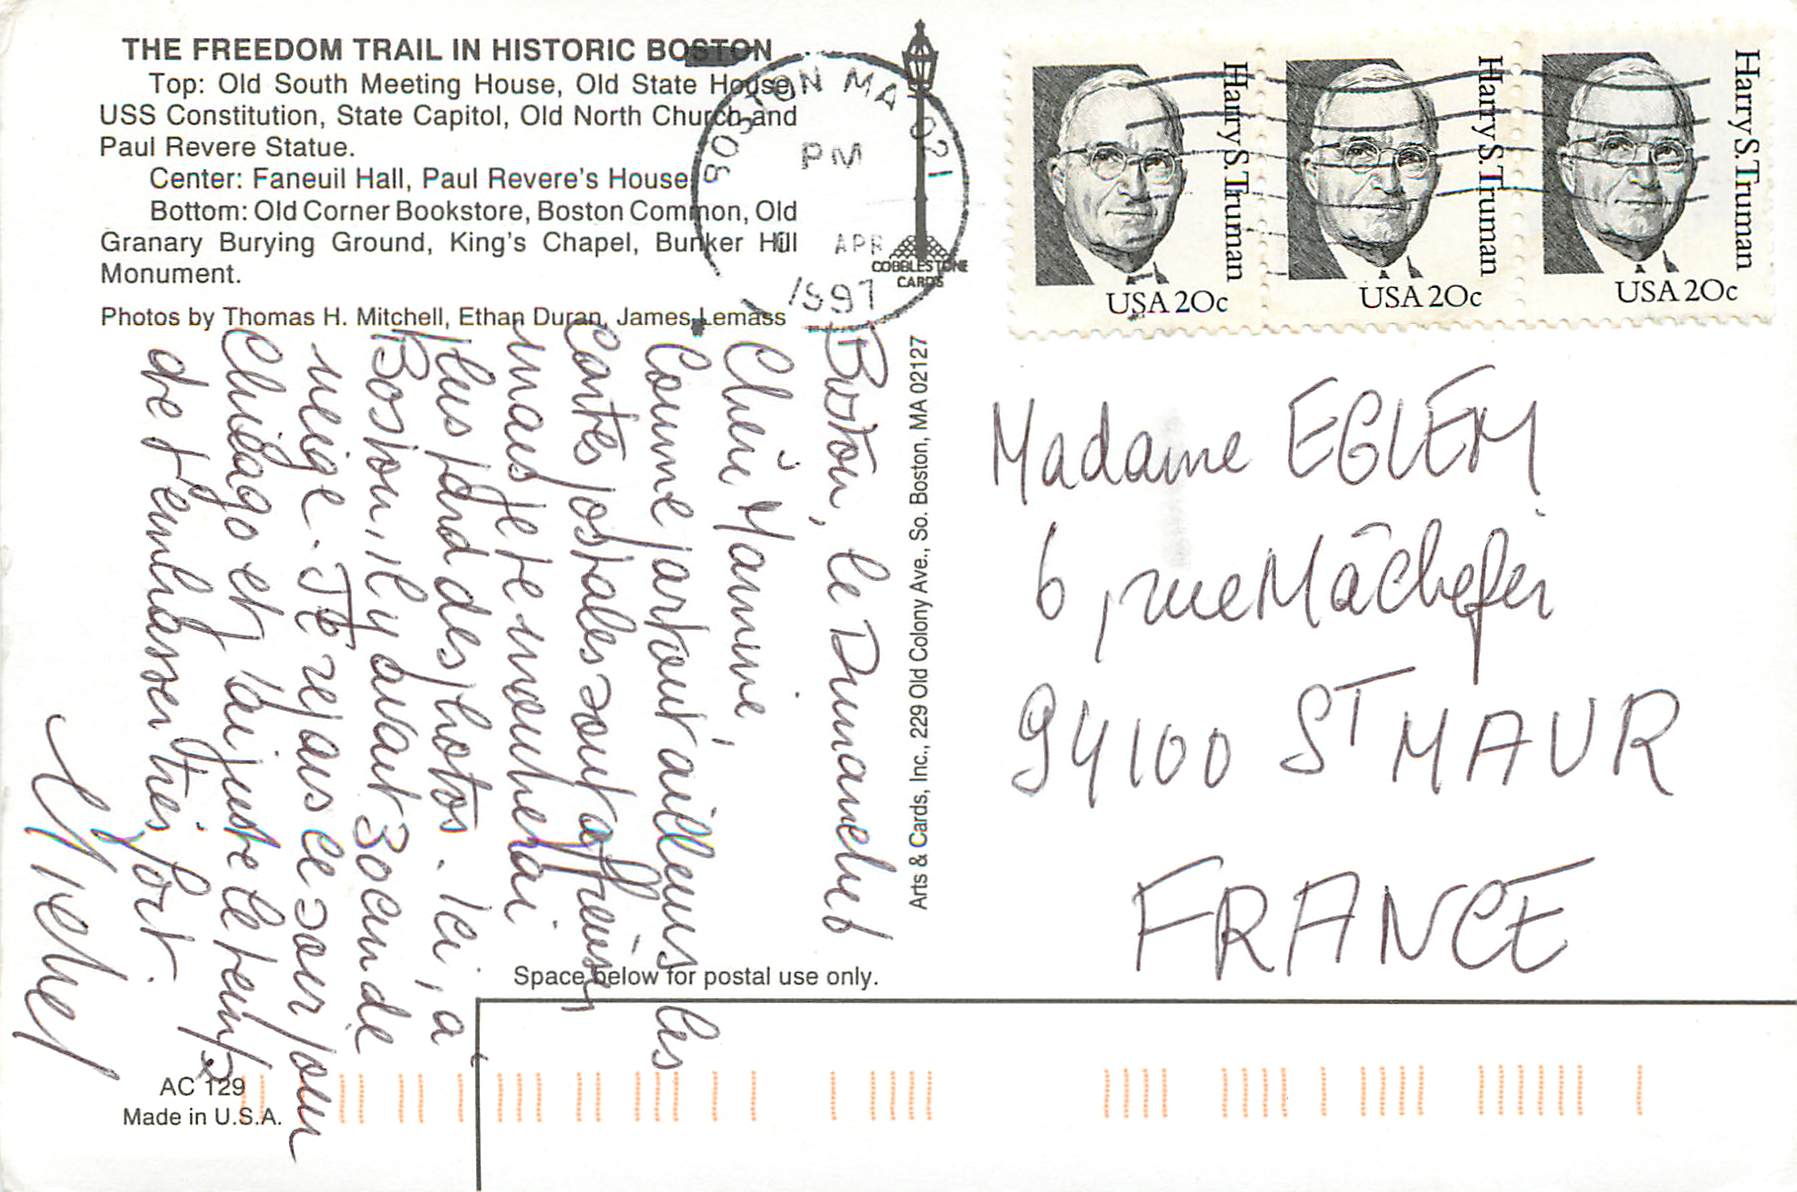 THE FREEDOM TRAIL IN HISTORIC BOSTON
Top: Old South Meeting House, Old State House,
USS Constitution, State Capitol, Old North Church and
Paul Revere Statue.
Center: Faneuil Hall, Paul Revere's House
Bottom: Old Corner Bookstore, Boston Common, Old
Granary Burying Ground, King's Chapel, Bunker Hill
Monument.
Photos by Thomas H. Mitchell, Ethan Duran, James Lemass
BOSTON MA 021
PM
APR
1997
COBBLESTONE
CARDS
Harry S. Truman
USA 20c
Harry S. Truman
USA 20c
Harry S. Truman
USA 20c
Boston, le Dimanche 6
Chère Mamine,
Comme partout ailleurs les
Cartes postales sont affreuses
mais je te montrerai
plus tard des photos. Ici, à
Boston, il y avait 30 cm de
neige. Je repars ce soir pour
Chicago et j'ai juste le temps
de t'embrasser très fort.
Michel
Arts & Cards, Inc., 229 Old Colony Ave., So. Boston, MA 02127
Madame EGLEM
6, rue Mâchefer
94100 ST MAUR
FRANCE
Space below for postal use only.
AC 129
Made in U.S.A.